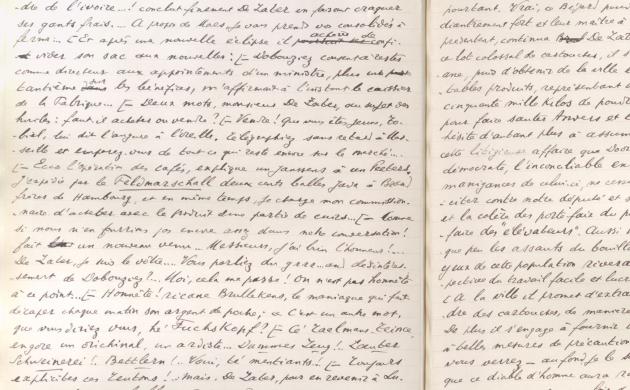 -dre de l'ivoire...! conclut finement De Zater en faisant craquer
ses gants frais.... A propos de Maes, je vous prend vos consolidés à
ferme... Et après une nouvelle éclipse il
vider son sac aux nouvelles: [— Dobouziez consent à rester
comme directeur aux appointements d'un ministre, plus un
tantième sur les bénéfices, m'affirmait à l'instant le caissier
de la Fabrique... [— Deux mots, monsieur De Zater, au sujet des
: faut-il acheter ou vendre? [— Vendre! que vous êtes jeune,
lui dit l'augure à l'oreille. Télégraphiez sans retard à Mar-
seille et emparez-vous de tout ce qui reste encore sur le marché...
[— l'opération des cafés, explique un Janssens à un Peeters.
J'expédie par le Feldmarschall deux cents balles Java à
frères de Hambourg, et en même temps, je charge mon commission-
naire d'acheter avec le produit une partie de cuirs... [— Comme
si nous n'en fumions pas encore assez dans notre conversation!
fait un nouveau venu... Messieurs, j'ai bien l'honneur!...
De Zater, je suis le vôtre... Vous parliez du gros... au désintéres-
sement de Dobouziez?... Moi, cela me passe! On n'est pas honnête
à ce point... [— Honnête! ricane Brullekens, le maniaque qui fait
décaper chaque matin son argent de poche; « C'est un autre mot,
que vous diriez vous, hé Fuchskopf? [—
engore un orichinal, un ardiste... Dummes Zeug! Lauter
Schweinerei! Bettlern!.. Voui, té mentiants!... [— Toujours
explicites ces Teutons! .. Mais, De Zater, pour en revenir à Lu-
pourtant. Vrai, ce Béjard peu
diantrement fort et leur maître à
président, continue De Zat
ce lot colossal de cartouches, il s
ane, puis d'obtenir de la ville e
tables produits, représentant e
cinquante mille kilos de poudr
pour faire sauter Anvers et b
hésite d'autant plus à assum
cette litigieuse affaire que Door
démocrate, l'inconciliable en
manigances de celui-ci, ne cess
-citer contre notre député et s
et la colère des ports-faix du p
-faire des "élévateurs". Aussi
que peu les assauts du bouill
yeux de cette population river
pectives du travail facile et lucr
[A la ville il promet d'extra
dre des cartouches, de manière
De plus il s'engage à fournir
à belles mesures de précaution
vous verrez — au fond, je le d
que ce diable d'homme aura r